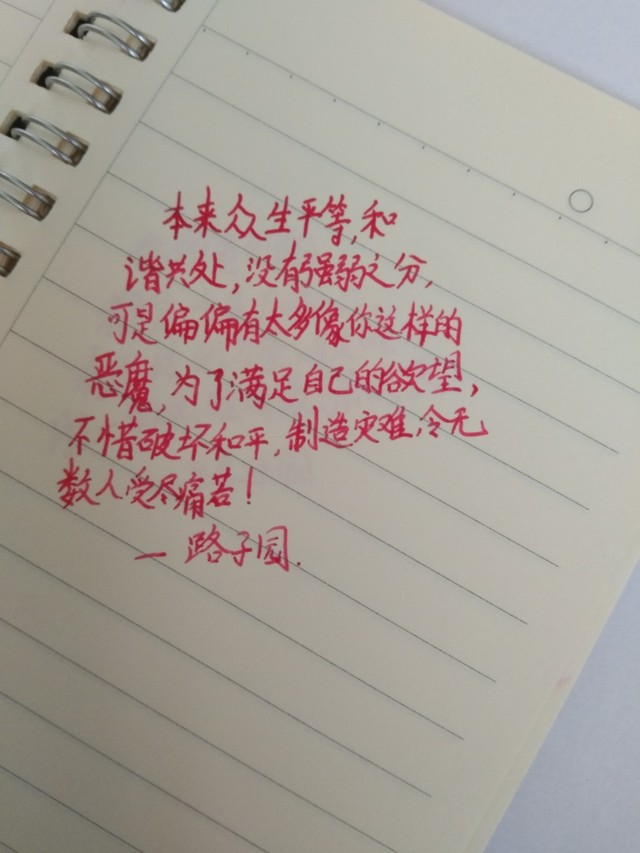 本来众生平等,和
谐共处,没有强弱之分,
可是偏偏有太多像你这样的
恶魔,为了满足自己的欲望,
不惜破坏和平,制造灾难,令无
数人受尽痛苦!
— 路子园.